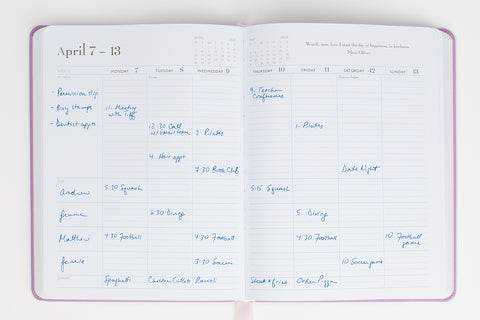 April 7 – 13
Watch, now, how I start the day in happiness, in kindness.
Mary Oliver
MONDAY 7
TUESDAY 8
WEDNESDAY 9
THURSDAY 10
FRIDAY 11
SATURDAY 12
SUNDAY 13
- Permission slip
- Buy stamps
- Dentist appts
11- Meeting
with Tiff
12:30 Call
4- Hair appt
2- Pilates
7:30 Book Club
9- Teacher
Conference
1- Pilates
Date Night
Andrew
5:30 Squash
5:15 Squash
6:30 Diving
5 Diving
Matthew
4:30 Football
4:30 Football
4:30 Football
10 Football
game
3:30 Soccer
10 Soccer game
Spaghetti
Chicken Cutlets
Ravioli
Steak & fries
Order Pizza